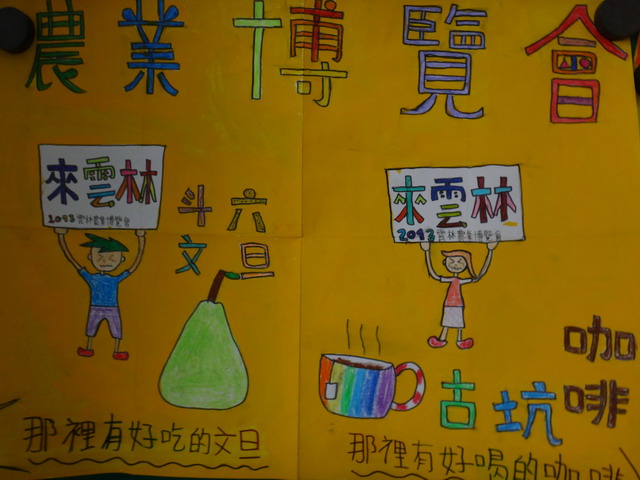 農業博覽會
來雲林
2013雲林農業博覽會
來雲林
2013雲林農業博覽會
斗六
文旦
咖啡
古坑
那裡有好吃的文旦
那裡有好喝的咖啡